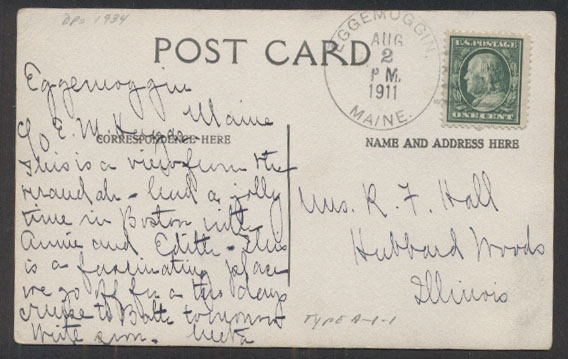 DPO 1934
POST CARD
EGGEMOGGIN,
AUG
2
P M.
1911
MAINE.
U.S. POSTAGE
ONE CENT
CORRESPONDENCE HERE
NAME AND ADDRESS HERE
Eggemoggin
Maine
c/o E. M.
This is a view from the
verandah - had a jolly
time in Boston with
Annie and Edith - This
is a fascinating place
we go off for a three day
cruise to tomorrow
Write soon.
Mrs. R. F. Hall
Hubbard Woods
Illinois
TYPE A-1-1